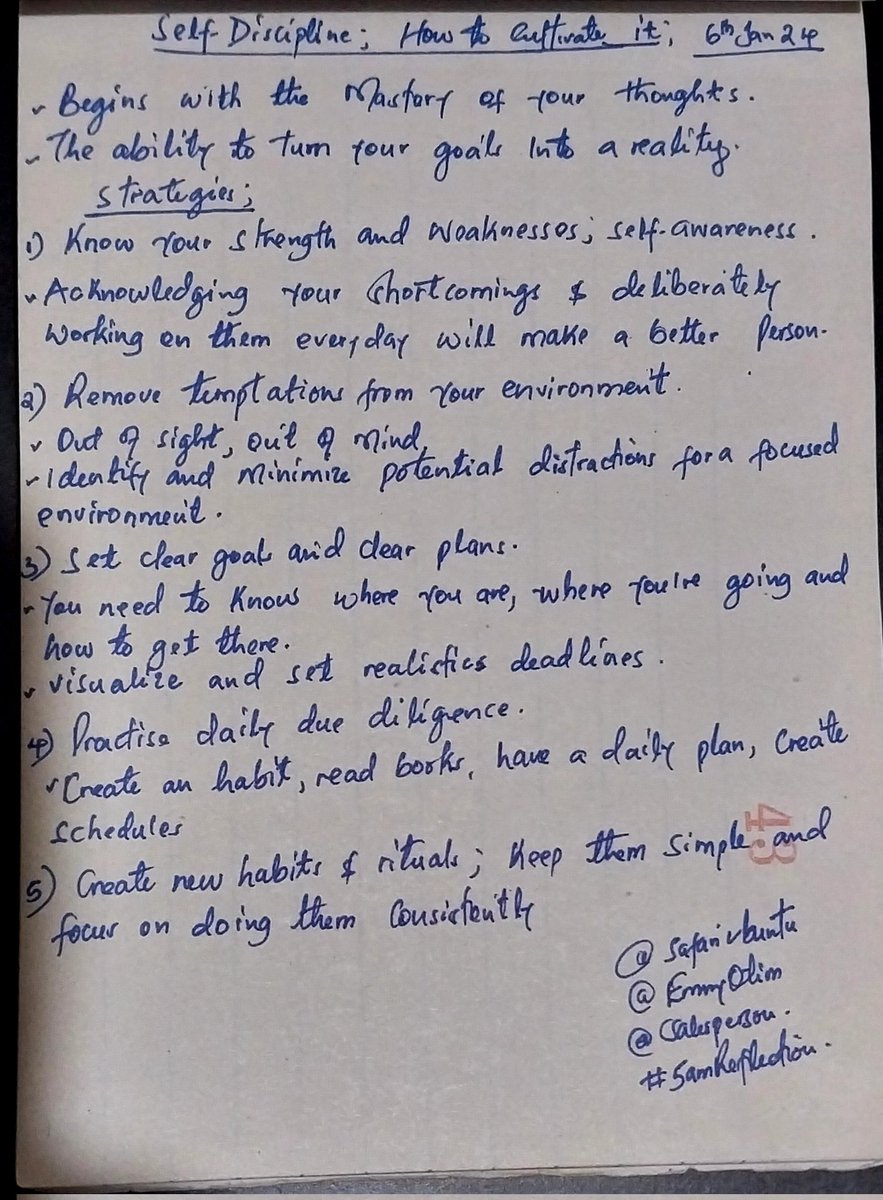 Self-Discipline; How to Cultivate it; 6th Jan 24
✓ Begins with the Mastory of your thoughts.
✓ The ability to turn your goals Into a reality.
Strategies;
1) Know your strength and weaknesses; self-awareness.
✓ Acknowledging your shortcomings & deliberately
working on them everyday will make a better person.
2) Remove temptations from your environment.
✓ Out of sight, out of mind,
✓ Identify and minimize potential distractions for a focused
environment.
3) Set clear goals and clear plans.
✓ You need to know where you are, where you're going and
how to get there.
✓ visualize and set realistics deadlines.
4) Practise daily due diligence.
✓ Create an habit, read books, have a daily plan, Create
schedules
43
5) Create new habits & rituals; keep them simple and
focus on doing them consistently
@ Safariubuntu
@ EmmyOlim
@ Salesperson.
#5amReflection.